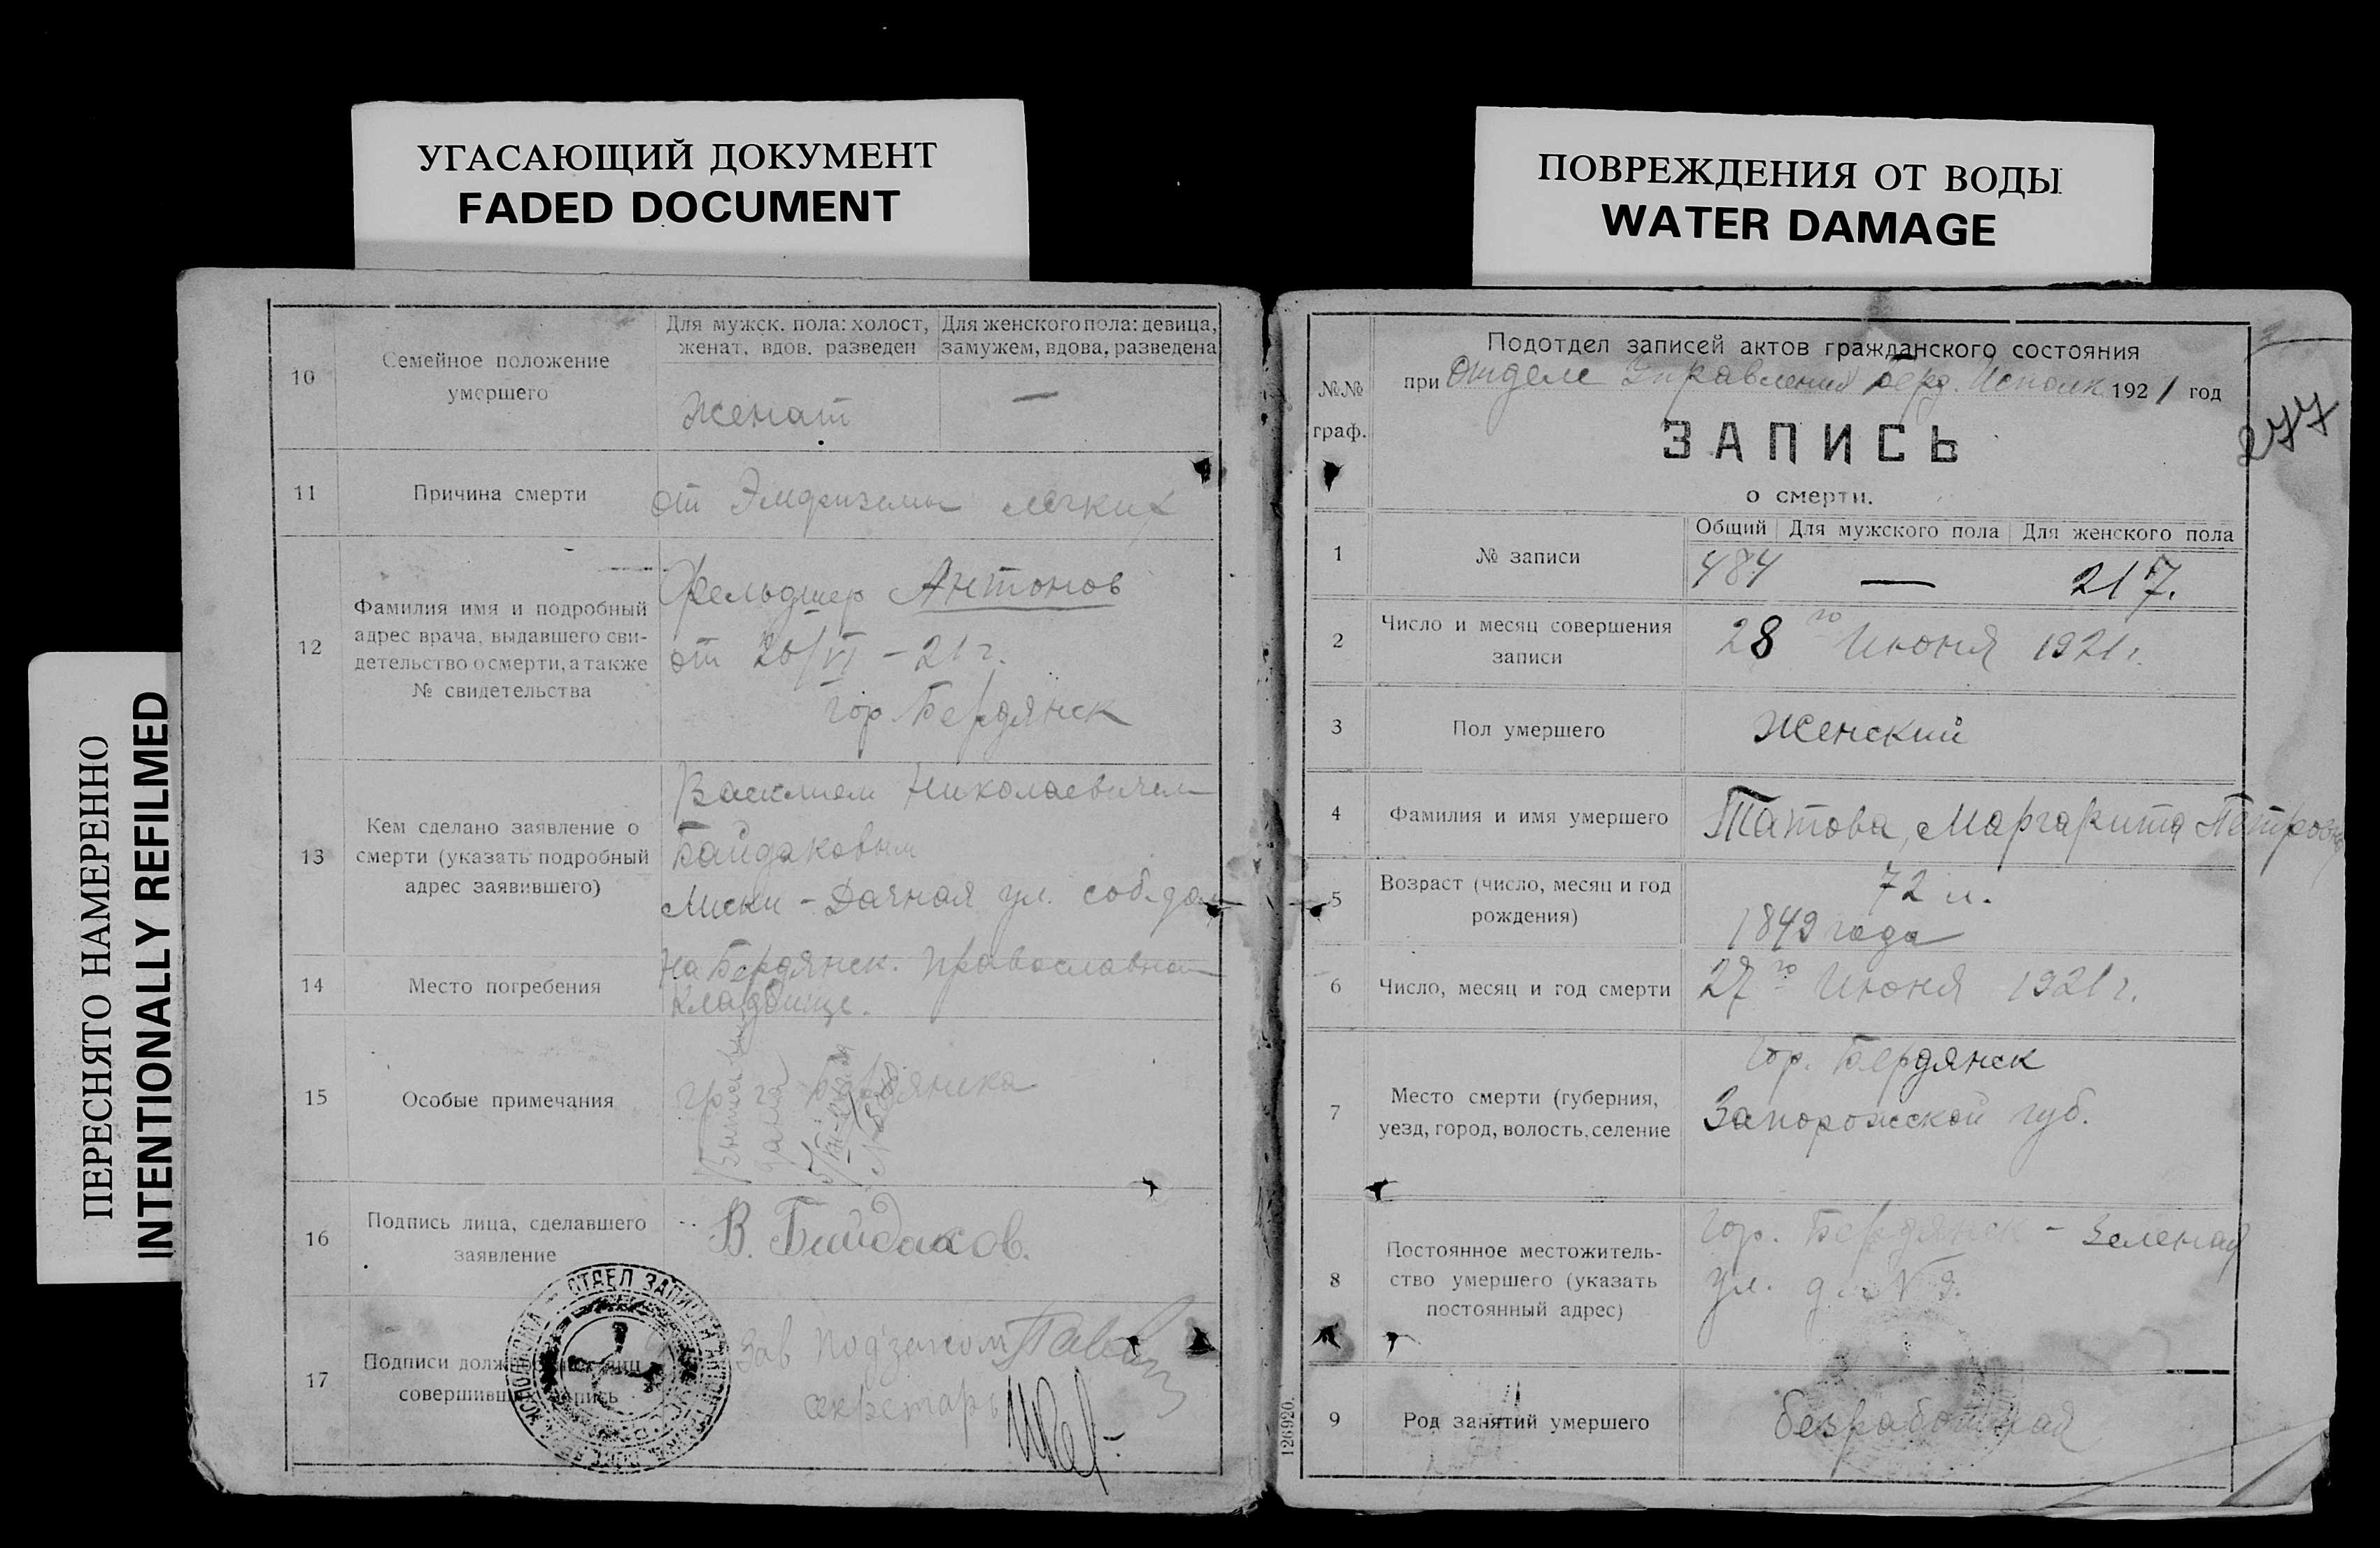 УГАСАЮЩИЙ ДОКУМЕНТ
FADED DOCUMENT
ПОВРЕЖДЕНИЯ ОТ ВОДЫ
WATER DAMAGE
ПЕРЕСНЯТО НАМЕРЕННО
INTENTIONALLY REFILMED
10
Семейное положение
умершего
Для мужск. пола: холост,
женат, вдов, разведен
Для женского пола: девица,
замужем, вдова, разведена
Женат
—
11
Причина смерти
от Эмфиземы легких
12
Фамилия имя и подробный
адрес врача, выдавшего сви-
детельство о смерти, а также
№ свидетельства
Фельдшер Антонов
от 26/VI – 21 г.
гор. Бердянск
13
Кем сделано заявление о
смерти (указать подробный
адрес заявившего)
Василием Николаевичем
Байдаковым
Лиски – Дачная ул. соб. дом
14
Место погребения
На Бердянск. православном
кладбище.
15
Особые примечания
16
Подпись лица, сделавшего
заявление
В. Байдаков.
17
Подписи должностных лиц
совершивших запись
Зав
секретарь
ОТДЕЛ ЗАПИСИ
№№
граф.
Подотдел записей актов гражданского состояния
при Отделе Управления Берд. Исполк 1921 год
277
ЗАПИСЬ
о смерти.
1
№ записи
Общий Для мужского пола Для женского пола
484 — 217.
2
Число и месяц совершения
записи
28го Июня 1921 г.
3
Пол умершего
Женский
4
Фамилия и имя умершего
Татова, Маргарита Петровна
5
Возраст (число, месяц и год
рождения)
72 л.
1849 года
6
Число, месяц и год смерти
27го Июня 1921 г.
7
Место смерти (губерния,
уезд, город, волость, селение
гор. Бердянск
Запорожской губ.
8
Постоянное местожитель-
ство умершего (указать
постоянный адрес)
Гор. Бердянск – Зеленая
ул. д.
9
Род занятий умершего
безработная
126920.